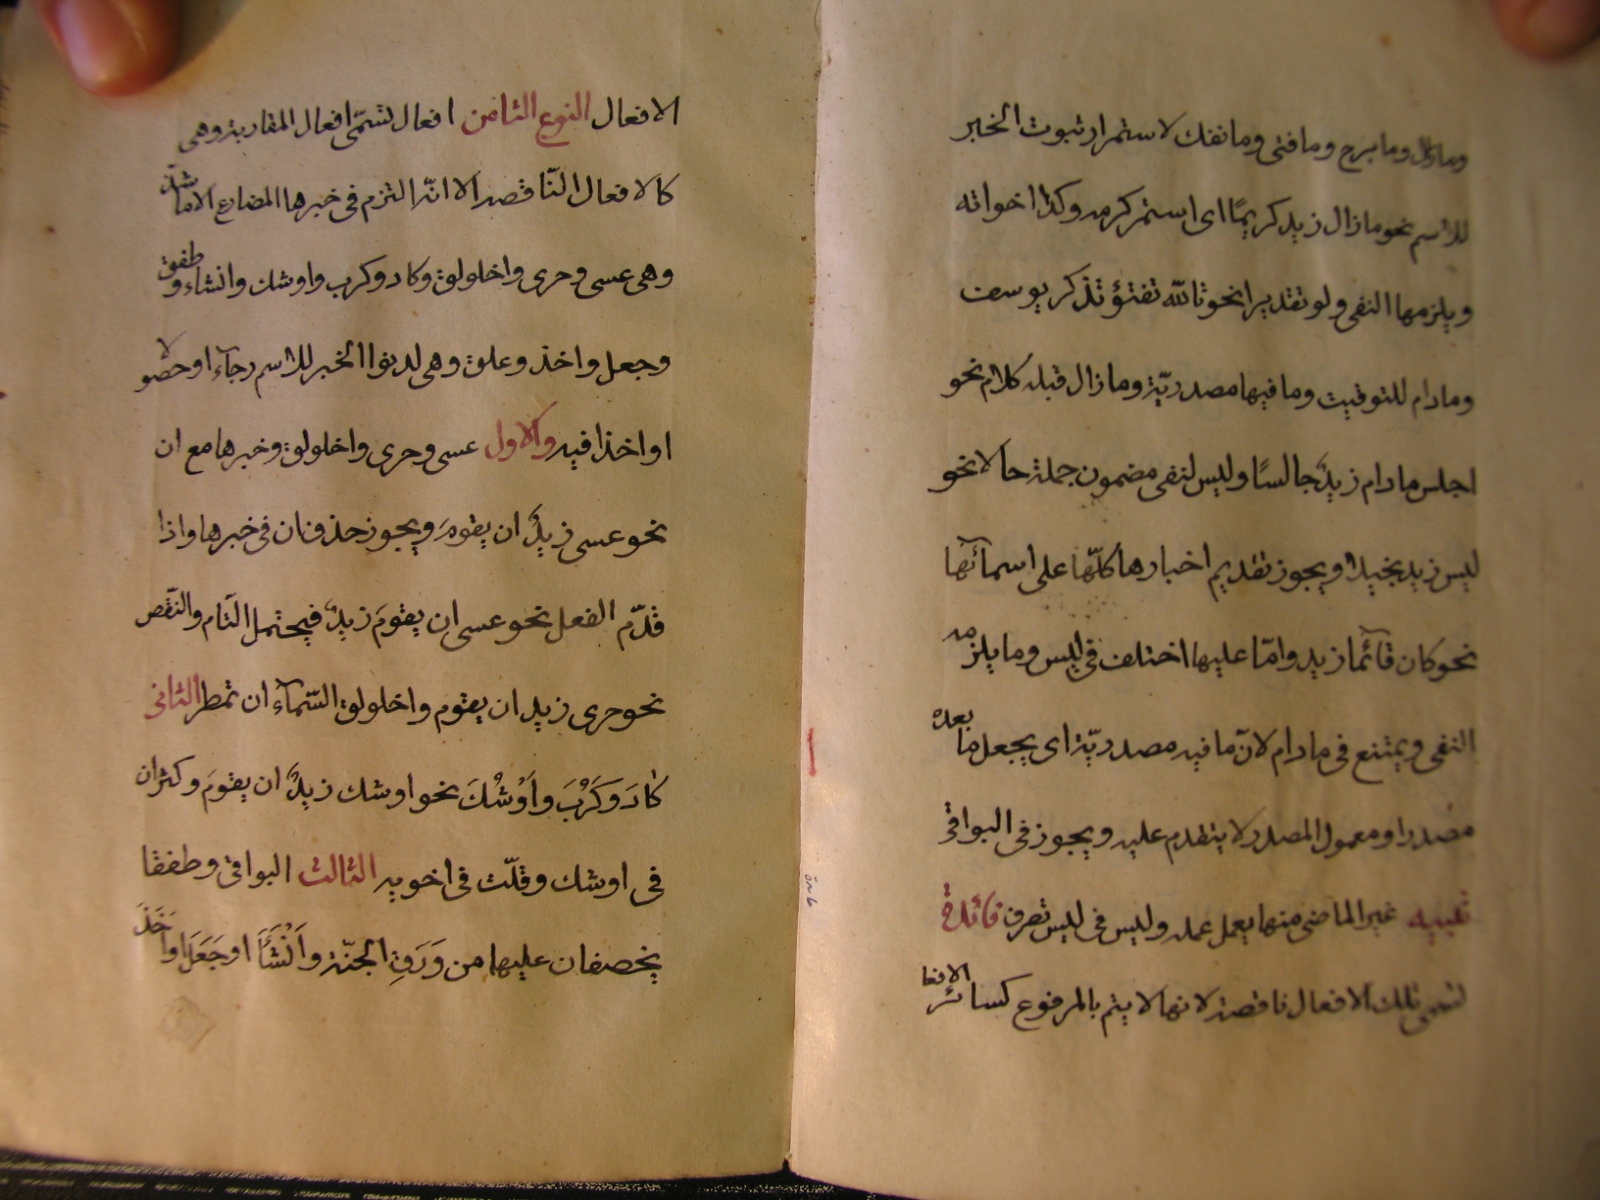 ومازال ومابرح ومافتئ وماانفك لاستمرار ثبوت الخبر
للاسم نحو مازال زيد كريمًا اى استمر كرمه وكذا اخواته
ويلزمها النفى ولو تقديرا نحو تالله تفتؤ تذكر يوسف
ومادام للتوقيت وما فيها مصدريّة ومازال قبله كلام نحو
اجلس مادام زيدٌ جالسًا وليس لنفى مضمون جملة حالا نحو
ليس زيد بخيلا ويجوز تقديم اخبارها كلّها على اسمآئها
نحو كان قآئما زيد وامّا عليها اختلف فى ليس وما يلزمه
النفى ويمتنع فى مادام لانّ ما فيه مصدريّة اى يجعل ما بعده
مصدرا ومعمول المصدر لا يتقدم عليه ويجوز فى البواقى
تنبيه غير الماضى منها يعمل عمله وليس فى ليس تصرف فائدة
تسمى تلك الافعال ناقصة لانها لا يتم بالمرفوع كسائر الافعا
الافعال النوع الثامن افعال تسمّى افعال المقاربة وهى
كالافعال النّاقصة الا انّه التزم فى خبرها المضارع الا ما شذّ
وهى عسى وحرى واخلولق وكاد وكرب واوشك وانشاء وطفق
وجعل واخذ وعلق وهى لدنوا الخبر للاسم رجآء او حصولا
او اخذا فيه والاول عسى وحرى واخلولق وخبرها مع ان
نحو عسى زيدٌ ان يقومَ ويجوز حذف ان فى خبرها واذا
قدّم الفعل نحو عسى ان يقومَ زيدٌ فيحتمل التّام والنّقص
نحو حرى زيد ان يقوم واخلولق السّمآء ان تمطر الثانى
كادَ وكَرُبَ واَوْشُكَ نحو اوشك زيدٌ ان يقومَ وكثر ان
فى اوشك وقلّت فى اخويه الثالث البواقى وطفقا
يخصفان عليهما من وَرَقِ الجنّة واَنْشَأَ او جَعَلَ او اَخَذَ